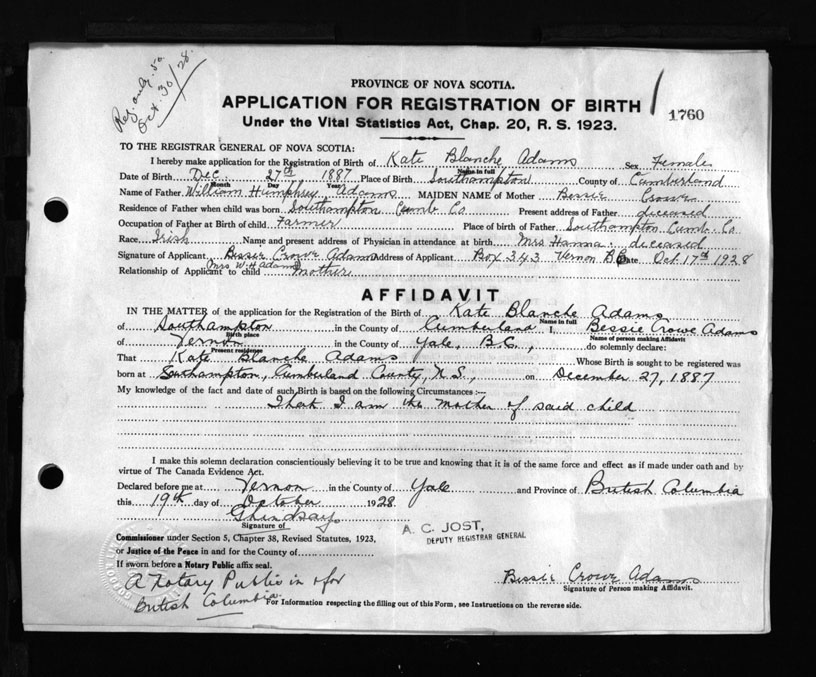 Reg. only. 50
Oct. 30/28.
PROVINCE OF NOVA SCOTIA.
APPLICATION FOR REGISTRATION OF BIRTH
1760
Under the Vital Statistics Act, Chap. 20, R. S. 1923.
TO THE REGISTRAR GENERAL OF NOVA SCOTIA:
I hereby make application for the Registration of Birth of Kate Blanche Adams Sex Female
Name in full
Date of Birth Dec. 27th 1887 Place of Birth Southampton County of Cumberland
Month Day Year
Name of Father William Humphrey Adams MAIDEN NAME of Mother Bessie Crowe
Residence of Father when child was born Southampton Cumb Co Present address of Father deceased
Occupation of Father at Birth of child Farmer Place of birth of Father Southampton Cumb. Co
Race Irish Name and present address of Physician in attendance at birth Mrs Hanna. deceased
Signature of Applicant Bessie Crowe Adams Address of Applicant Box 343 Vernon BC Date Oct 17th 1928
Mrs W. H Adams
Relationship of Applicant to child mother
AFFIDAVIT
IN THE MATTER of the application for the Registration of the Birth of Kate Blanche Adams
Name in full
of Southampton in the County of Cumberland I, Bessie Crowe Adams
Birth place Name of person making Affidavit
of Vernon in the County of Yale, B.C., do solemnly declare:
Present residence
That Kate Blanche Adams Whose Birth is sought to be registered was
born at Southampton, Cumberland County, N.S., on December 27, 1887
My knowledge of the fact and date of such Birth is based on the following Circumstances:—
That I am the mother of said child
I make this solemn declaration conscientiously believing it to be true and knowing that it is of the same force and effect as if made under oath and by
virtue of The Canada Evidence Act.
Declared before me at Vernon in the County of Yale and Province of British Columbia
this 19th day of October 1928
Signature of
A. C. JOST,
DEPUTY REGISTRAR GENERAL
Commissioner under Section 5, Chapter 38, Revised Statutes, 1923,
or Justice of the Peace in and for the County of
If sworn before a Notary Public affix seal.
A Notary Public in & for
British Columbia
Bessie Crowe Adams
Signature of Person making Affidavit.
For Information respecting the filling out of this Form, see Instructions on the reverse side.